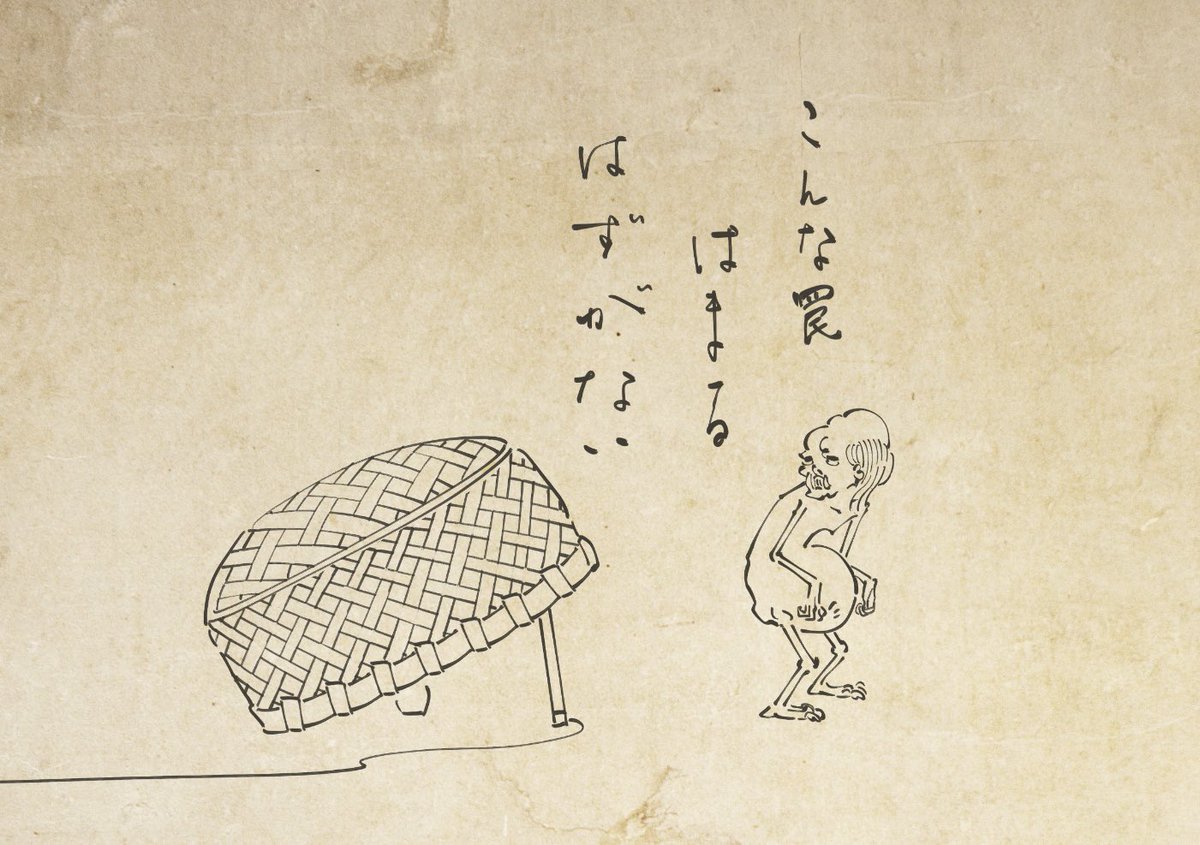 こんな罠
はまる
はずがない